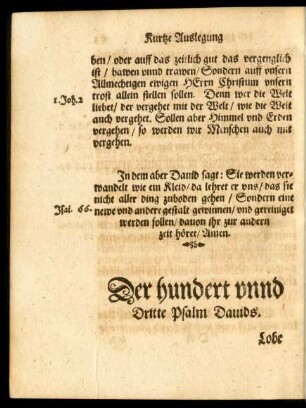 Kurtze Auslegung
ben/ oder auff das zeitlich gut das vergenglich
ist/ bawen vnnd trawen/ Sondern auff vnsern
Allmechtigen ewigen HErrn Christum vnsern
trost allein stellen sollen. Denn wer die Welt
1. Joh. 2
liebet/ der vergehet mit der Welt/ wie die Welt
auch vergehet. Sollen aber Himmel vnd Erden
vergehen/ so werden wir Menschen auch mit
vergehen.
In dem aber Dauid sagt: Sie werden ver-
wandelt wie ein Kleid/ da lehret er vns/ das sie
nicht aller ding zuboden gehen/ Sondern eine
Jsai. 66.
newe vnd ander gestalt gewinnen/ vnd gereiniget
werden sollen/ dauon ihr zur andern
zeit höret/ Amen.
Der hundert vnnd
Dritte Psalm Dauids.
Lobe